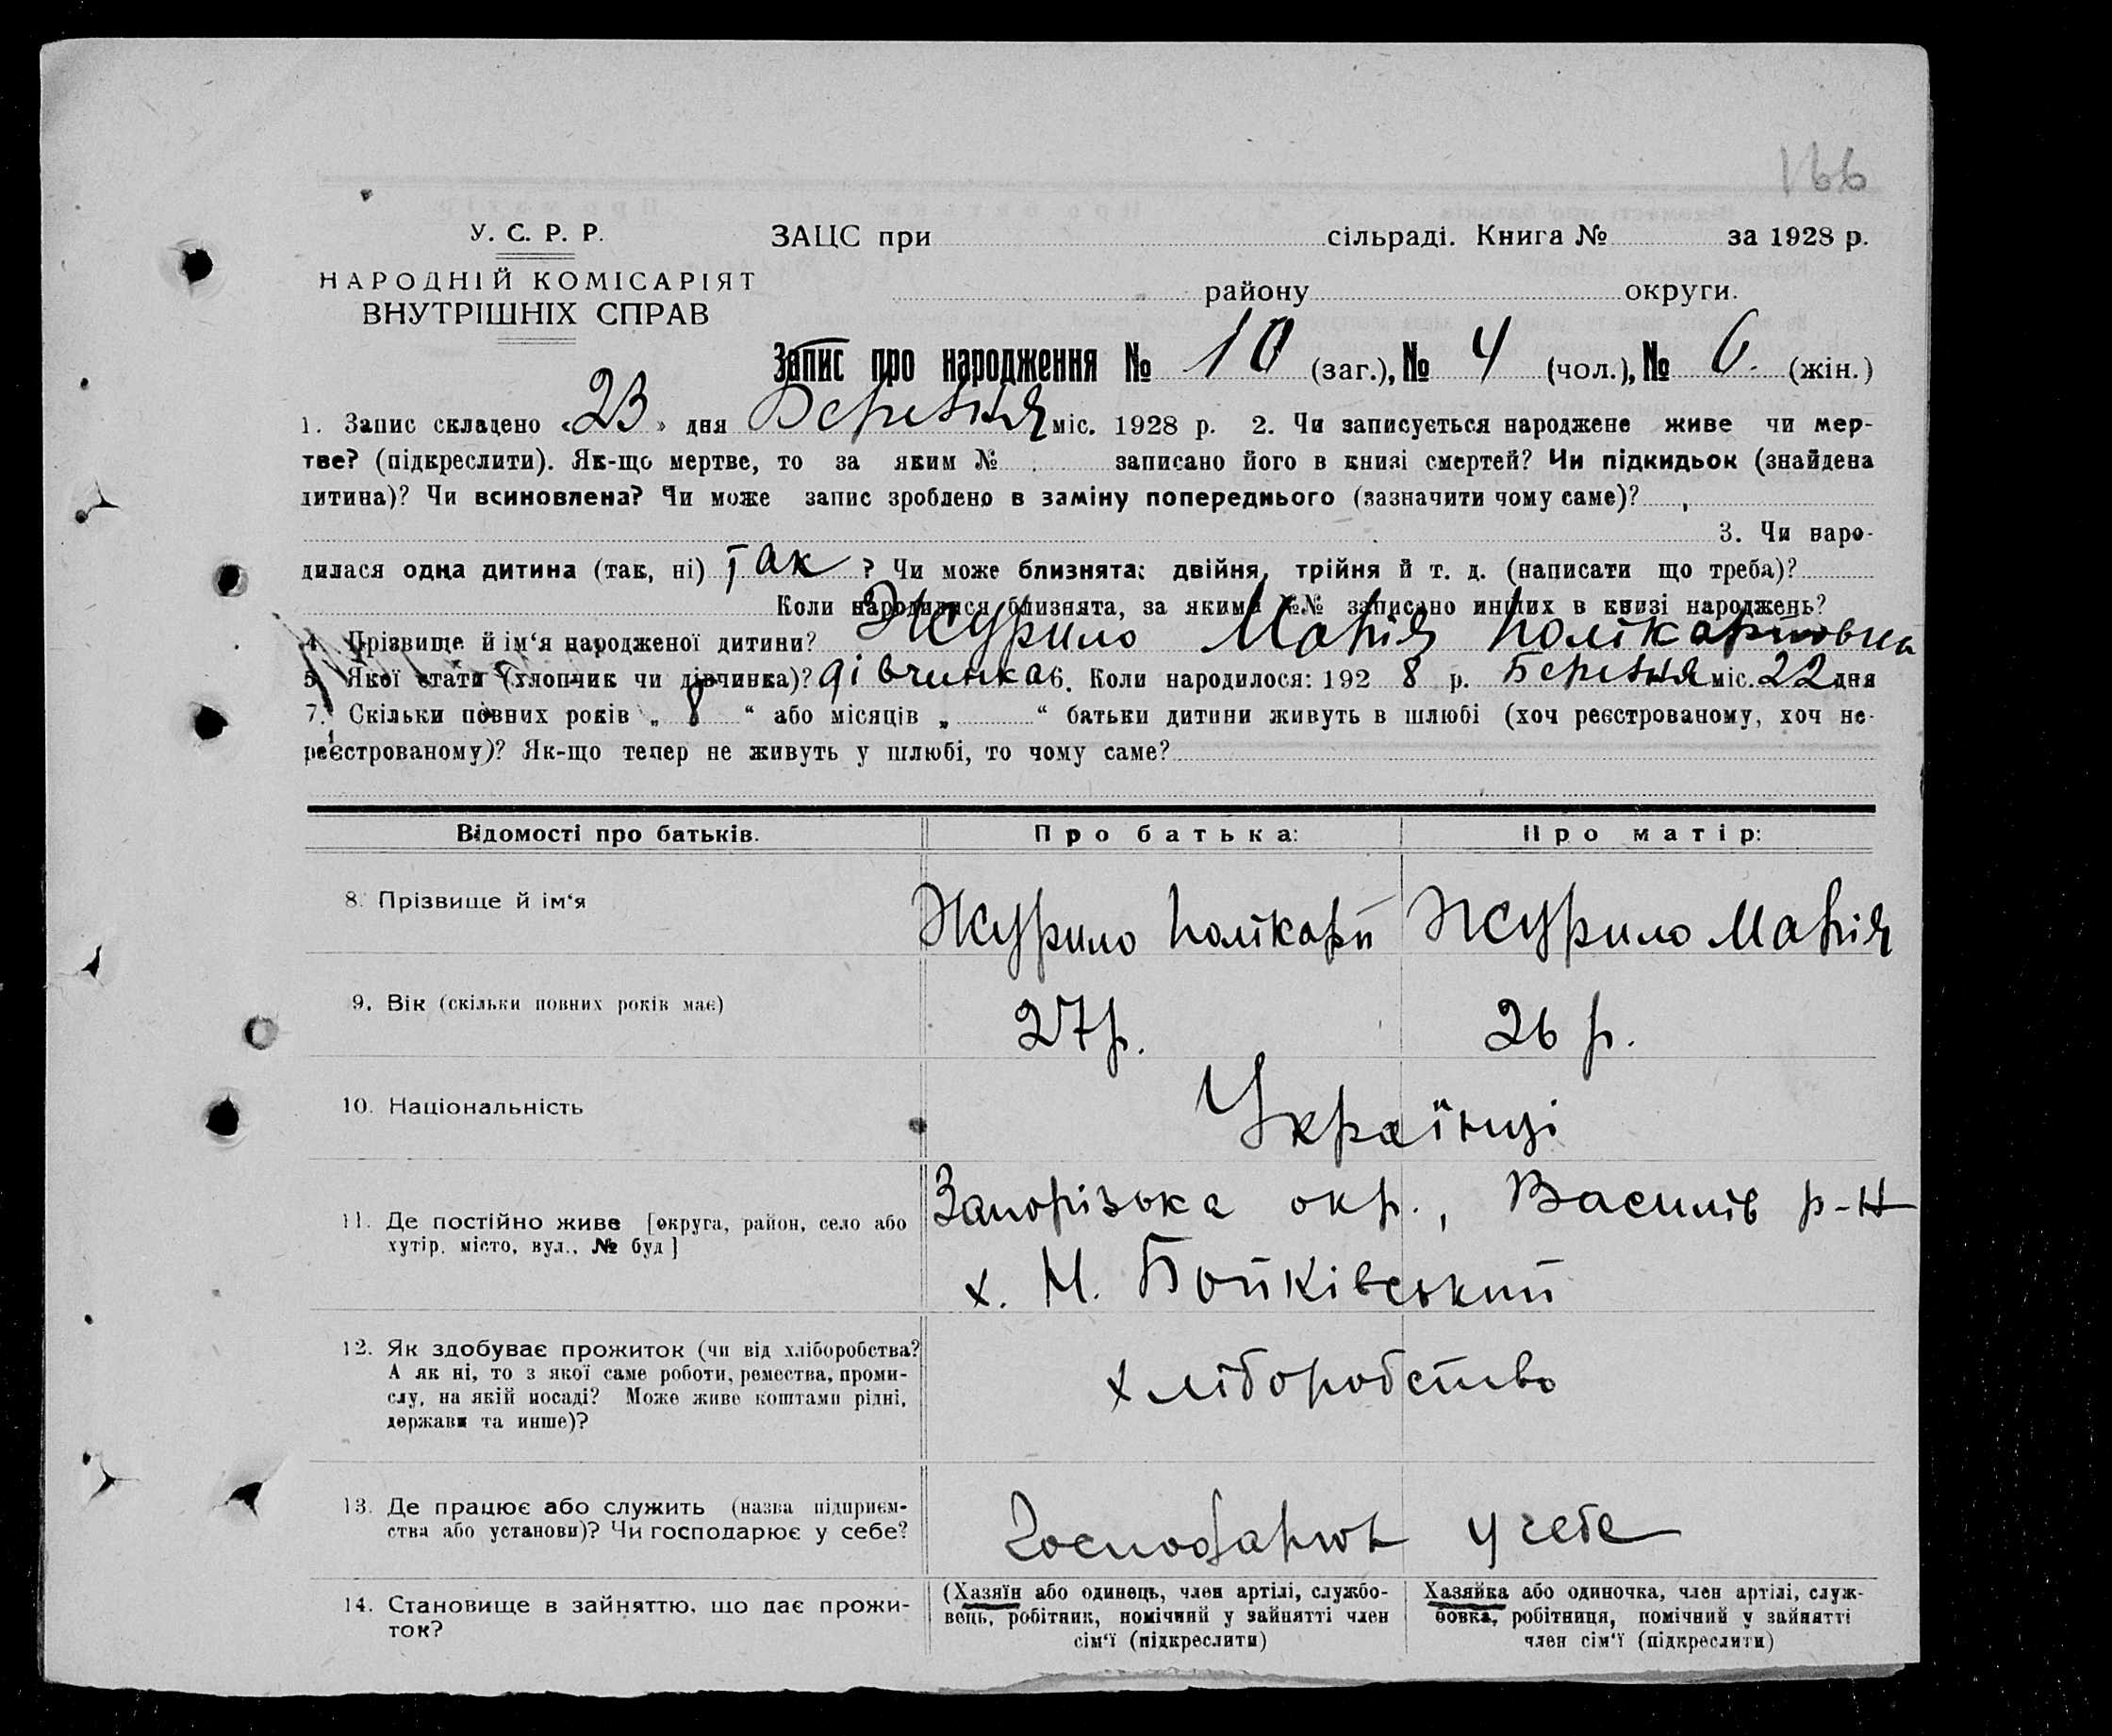 166
У. С. Р. Р.
НАРОДНІЙ КОМІСАРІЯТ
ВНУТРІШНІХ СПРАВ
ЗАЦС при сільраді. Книга № за 1928 р.
району округи.
Запис про народження № 10 (заг.), № 4 (чол.), № 6. (жін.)
1. Запис складено «23» дня Березня міс. 1928 р. 2. Чи записується народжене живе чи мер-
тве? (підкреслити). Як-що мертве, то за яким № записано його в книзі смертей? Чи підкидьок (знайдена
дитина)? Чи всиновлена? Чи може запис зроблено в заміну попереднього (зазначити чому саме)?
3. Чи наро-
дилася одна дитина (так, ні) Так ? Чи може близнята: двійня, трійня й т. д. (написати що треба)?
Коли народилися близнята, за якими №№ записано инших в книзі народжень?
4. Прізвище й ім‘я народженої дитини? Журило Марія Полікарповна
5. Якої стати (хлопчик чи дівчинка)? дівчинка 6. Коли народилося: 192 8 р. Березня міс. 22 дня
7. Скільки повних років „ 8 “ або місяців „ “ батьки дитини живуть в шлюбі (хоч реєстрованому, хоч не-
реєстрованому)? Як-що тепер не живуть у шлюбі, то чому саме?
Відомості про батьків. Про батька: Про матір:
8. Прізвище й ім‘я Журило Полікарп Журило Марія
9. Вік (скільки повних років має) 27 р. 26 р.
10. Національність Українці
11. Де постійно живе [округа, район, село або
хутір, місто, вул., № буд]
Запорізька окр., Василів р-н
х. Н. Бойківський
12. Як здобуває прожиток (чи від хліборобства?
А як ні, то з якої саме роботи, ремества, проми-
слу, на якій посаді? Може живе коштами рідні,
держави та инше)?
хліборобство
13. Де працює або служить (назва підприєм-
ства або установи)? Чи господарює у себе?
Господарют у себе
14. Становище в зайняттю, що дає прожи-
ток?
(Хазяїн або одинець, член артілі, службо-
вець, робітник, помічний у зайнятті член
сім‘ї (підкреслити)
Хазяйка або одиночка, член артілі, служ-
бовка, робітниця, помічний у зайнятті
член сім‘ї (підкреслити)